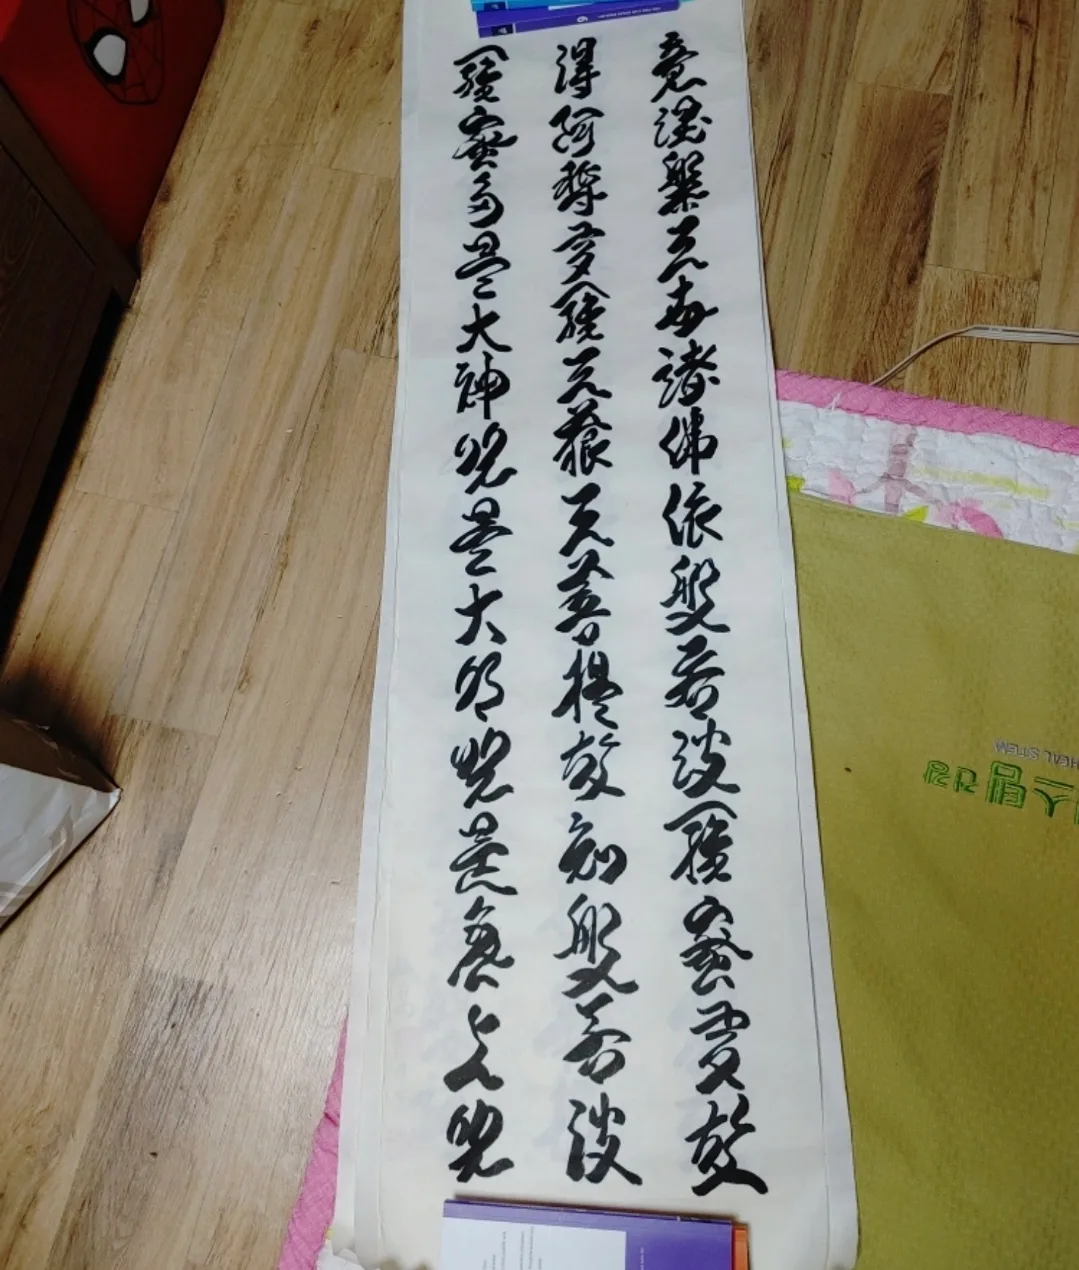 竟涅槃三世諸佛依般若波羅蜜多故
得阿耨多羅三藐三菩提故知般若波
羅蜜多是大神呪是大明呪是無上呪
6
HEAL STEM
스템건강